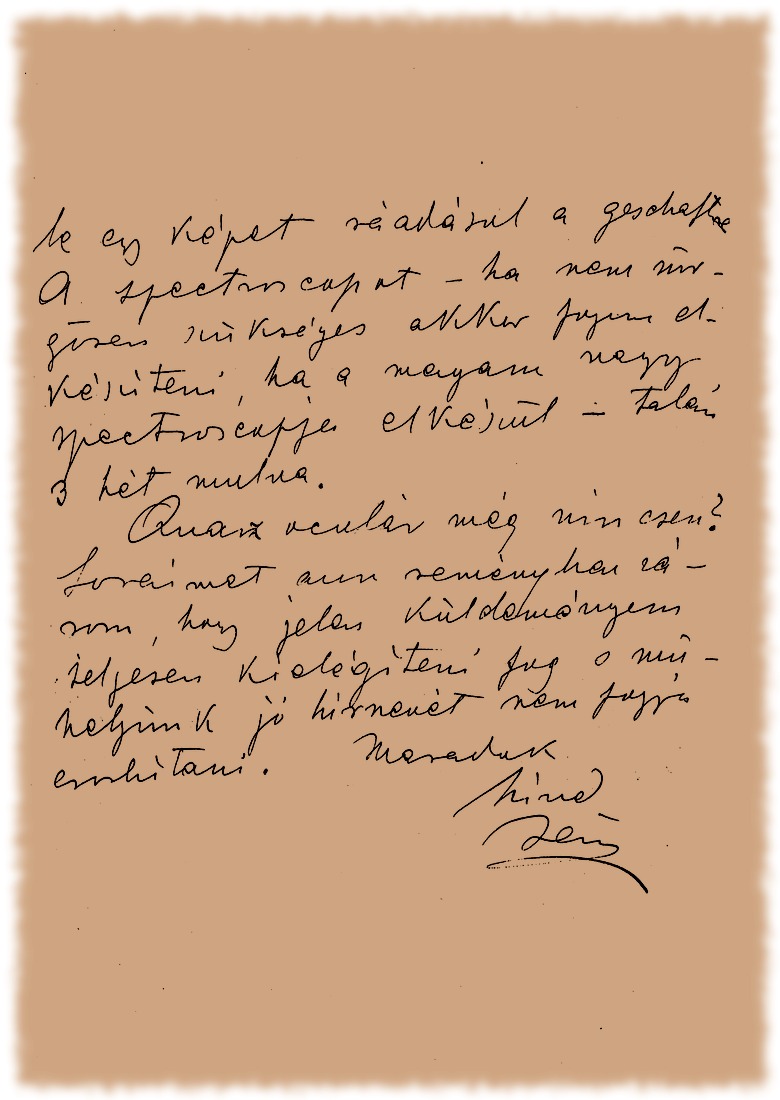 le egy képet ráadásul a geschäftre
A spectroscopot – ha nem sür-
gősen szükséges akkor fogom el-
készíteni, ha a magam nagy
spectroscopja elkészül – talán
3 hét mulva.
Quarz oculár még nincsen?
Soraimat azon reményben zá-
rom, hogy jelen küldeményem
teljesen kielégíteni fog s mű-
helyünk jó hírnevét nem fogja
csorbítani. Maradok
hived
Jenő